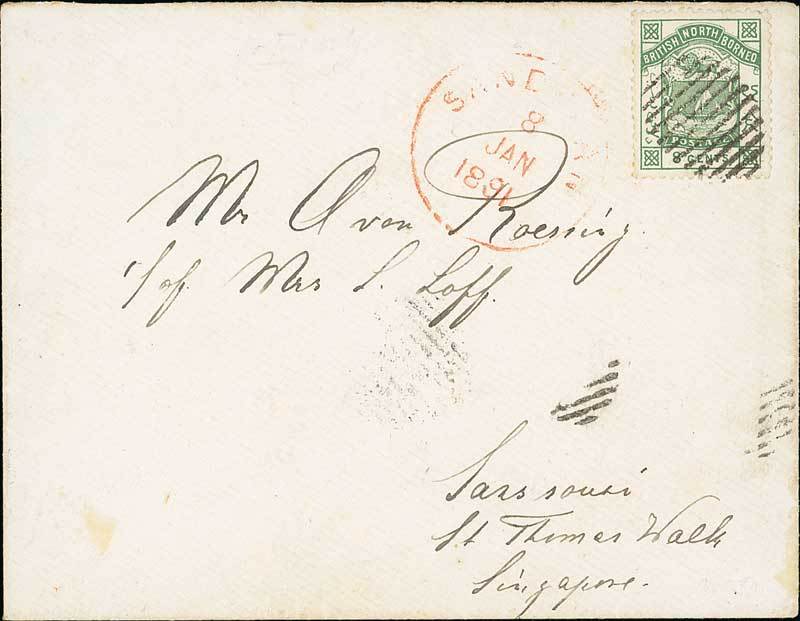 BRITISH NORTH BORNEO
POSTAGE
8 CENTS
SAND
8
JAN
1891
Mr O von Roessing
c/of Mrs L. Loff.
Sans souci
St Thomas Walk
Singapore.